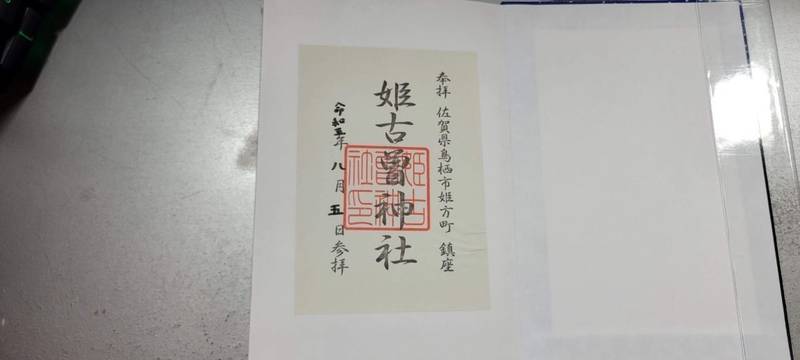 奉拝 佐賀県鳥栖市姫方町 鎮座
姫古曽神社
令和五年八月五日参拝
姫古曽神社印